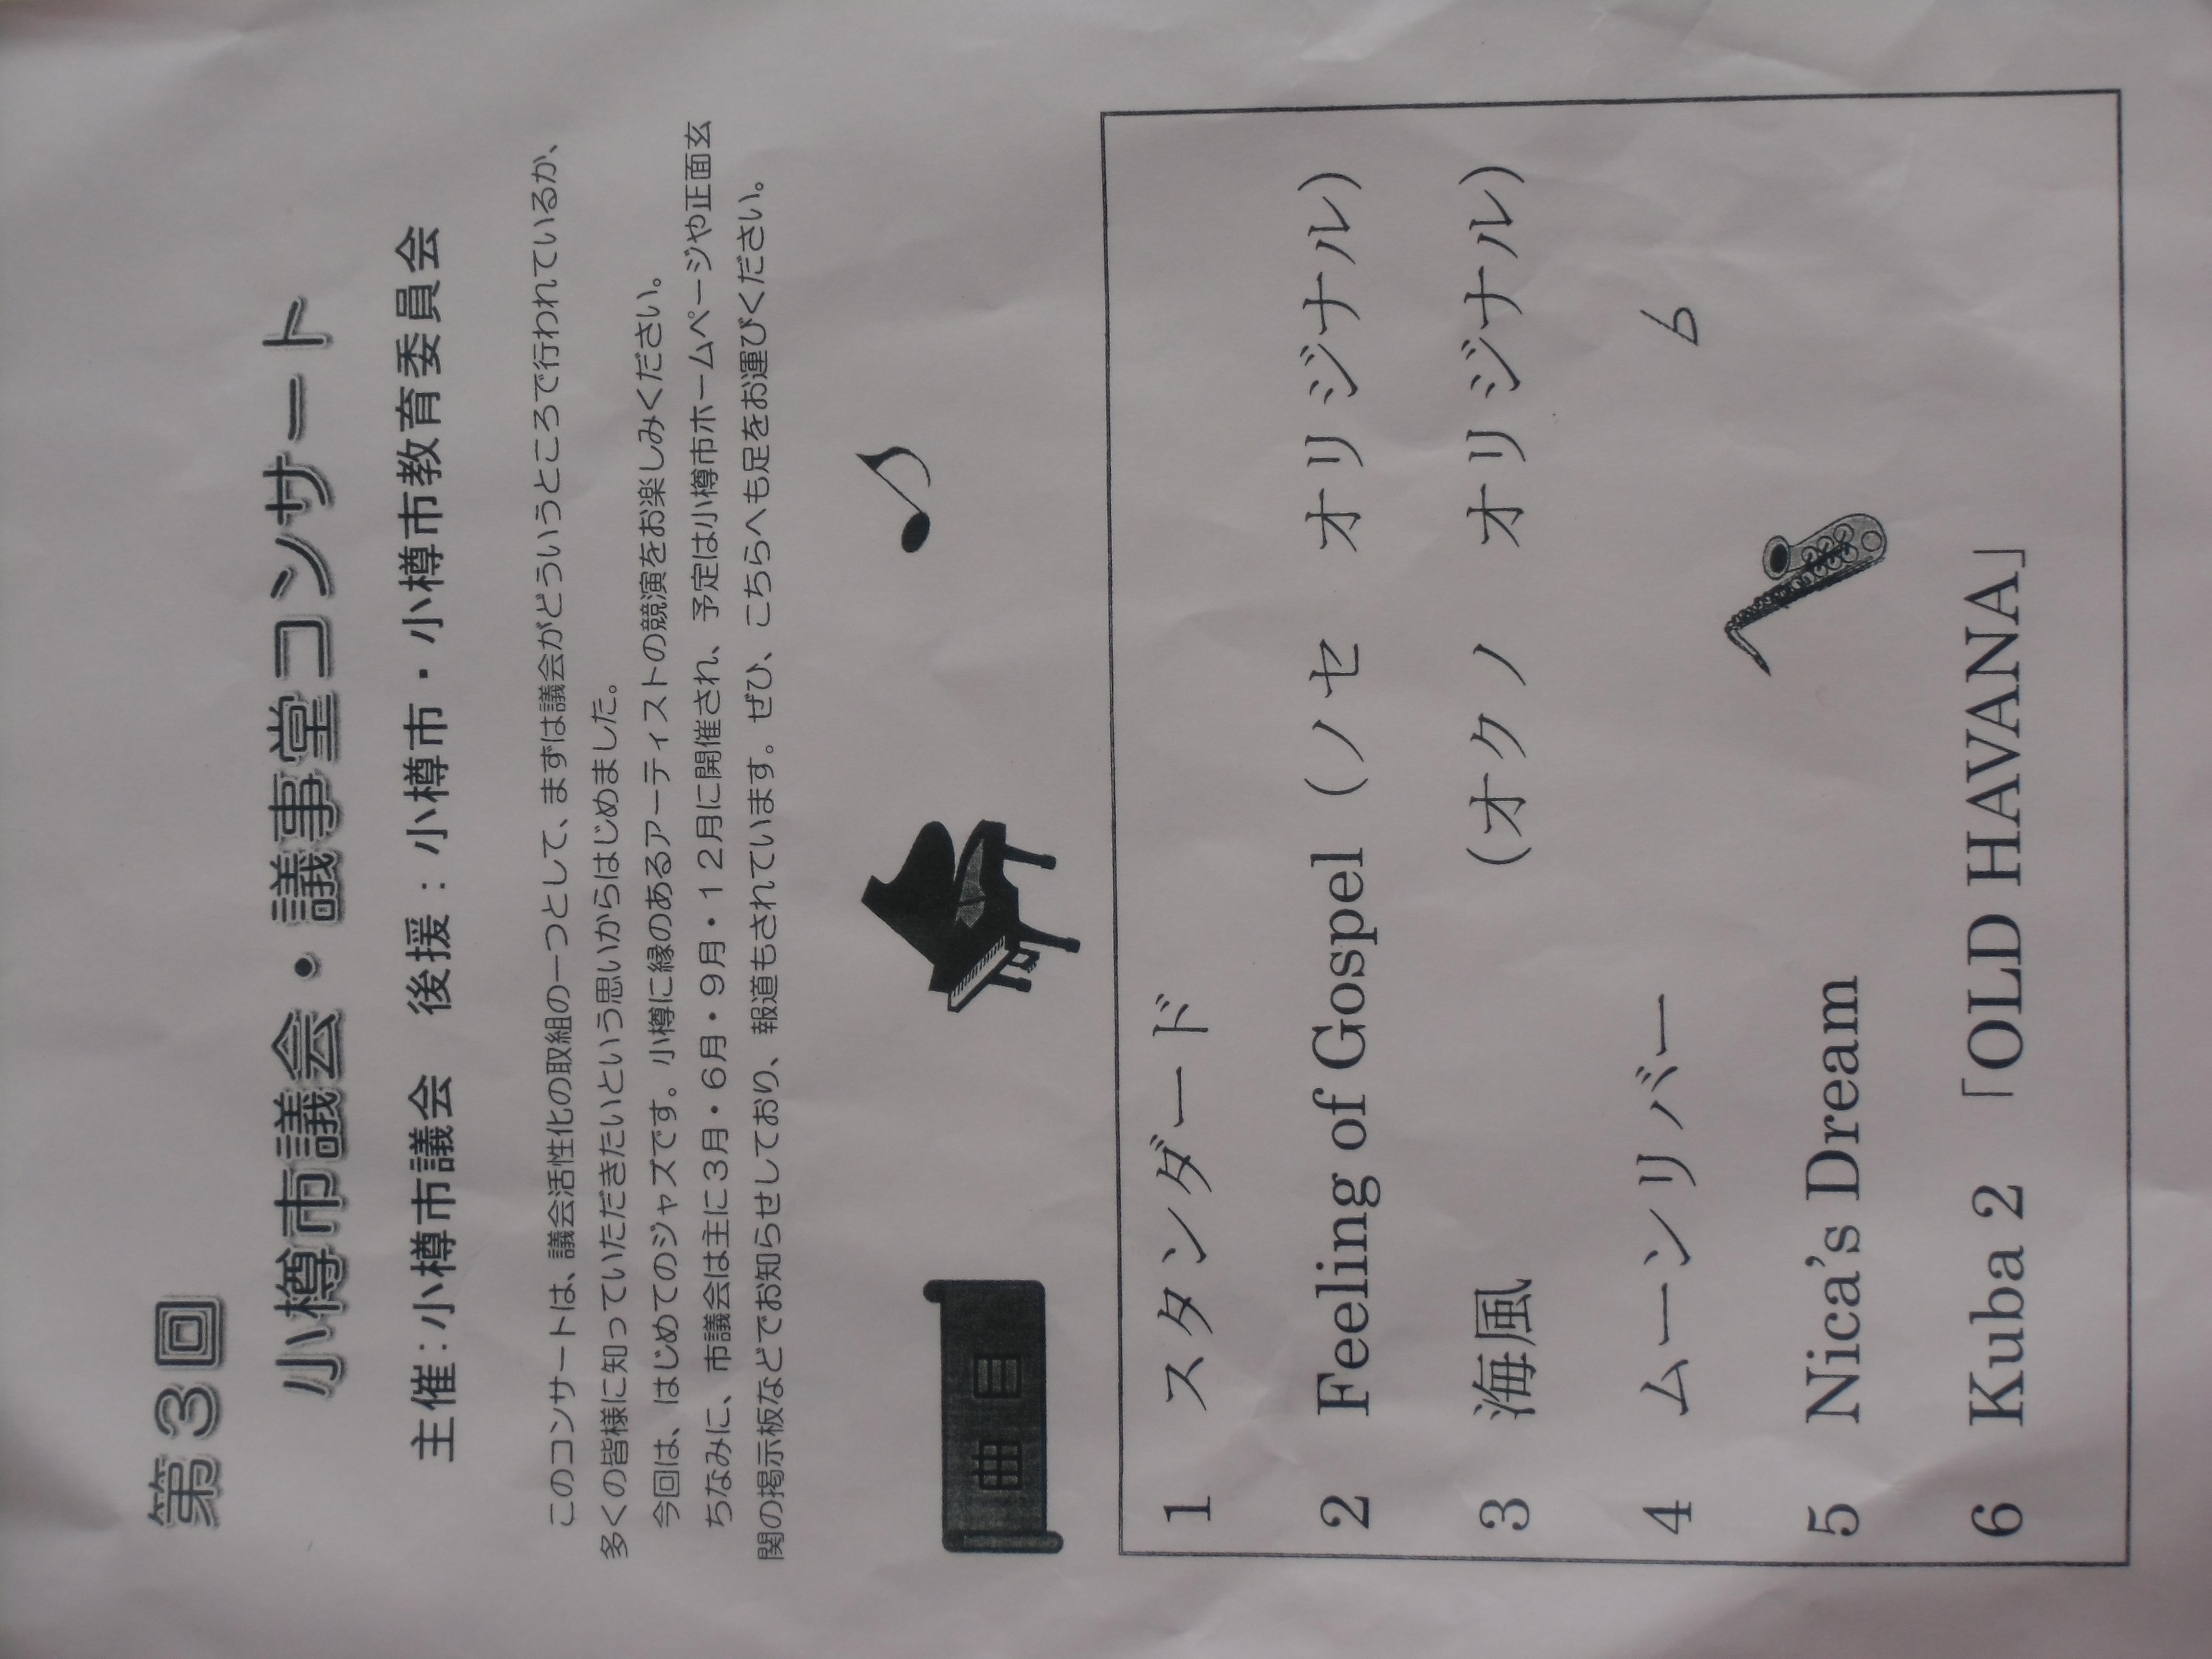 第３回
小樽市議会・議事堂コンサート
主催：小樽市議会　後援：小樽市・小樽市教育委員会
このコンサートは、議会活性化の取組の一つとして、まずは議会がどういうところで行われているか、
多くの皆様に知っていただきたいという思いからはじめました。
今回は、はじめてのジャズです。小樽に縁のあるアーティストの競演をお楽しみください。
ちなみに、市議会は主に３月・６月・９月・１２月に開催され、予定は小樽市ホームページや正面玄
関の掲示板などでお知らせしており、報道もされています。ぜひ、こちらへも足をお運びください。
曲目
1　スタンダード
2　Feeling of Gospel（ノセ　オリジナル）
3　海風　（オクノ　オリジナル）
4　ムーンリバー　6
5　Nica's Dream
6　Kuba 2　「OLD HAVANA」